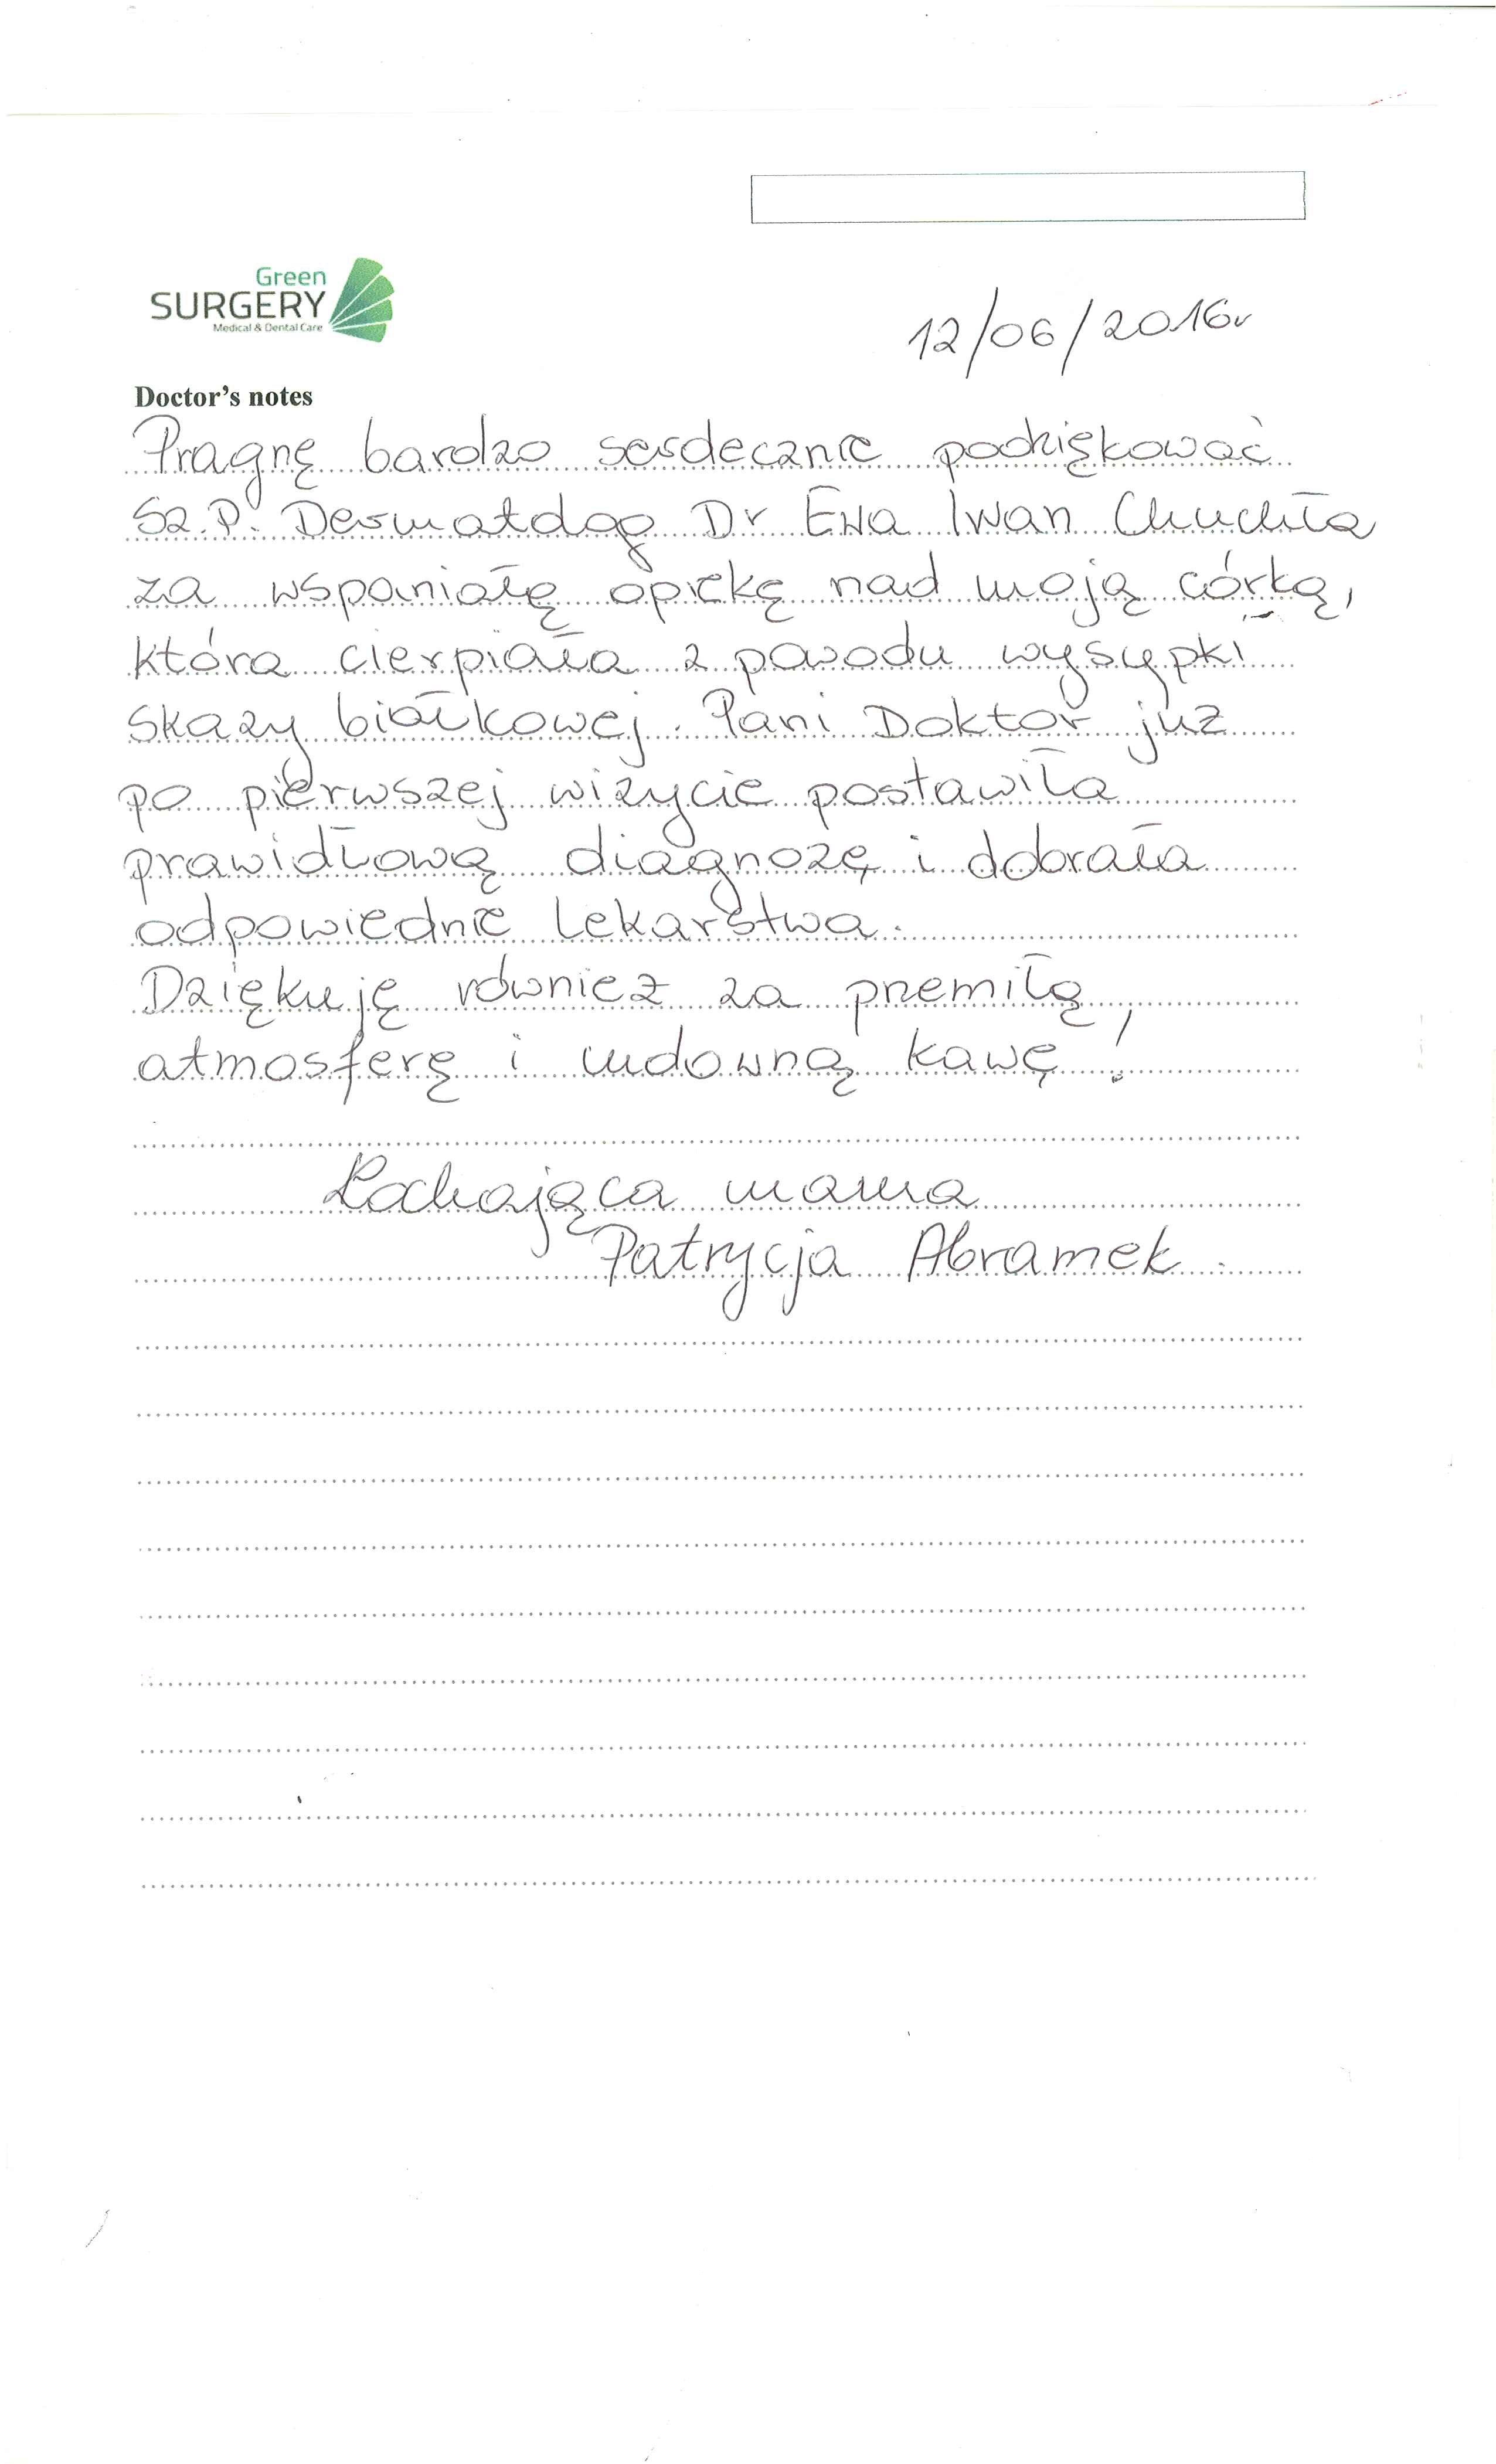 Green
SURGERY
Medical & Dental Care
12/06/2016r
Doctor's notes
Pragnę bardzo serdecznie podziękować
Sz.P. Dermatolog Dr Ewa Iwan Chuchła
za wspaniałę opiekę nad moją córką,
która cierpiała z powodu wysypki
skazy białkowej. Pani Doktor już
po pierwszej wizycie postawiła
prawidłową diagnozę i dobrała
odpowiednie lekarstwa.
Dziękuję również za przemiłą
atmosferę i cudowną kawę!
Kochająca mama
Patrycja Abramek.